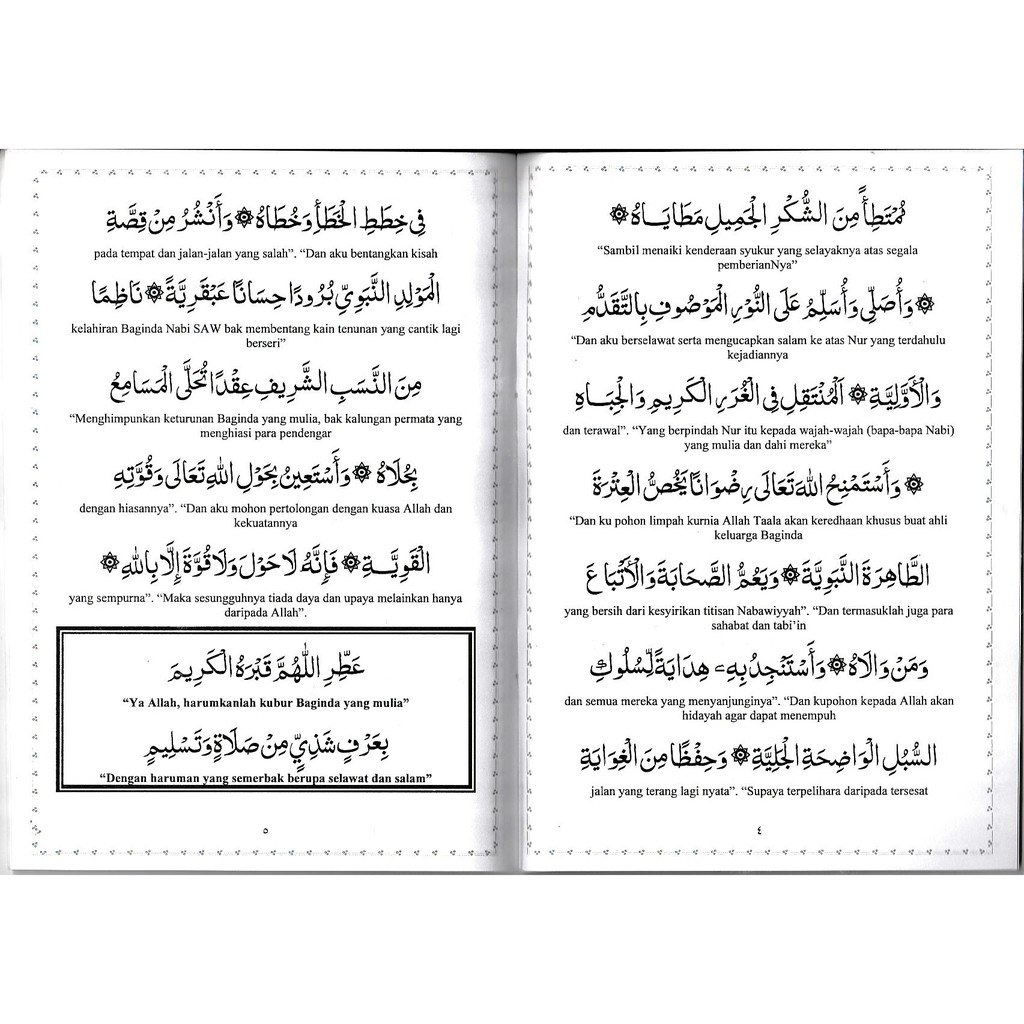 مُمْتَطِأً مِنَ الشُّكْرِ الْجَمِيلِ مَطَايَاهُ ۞
“Sambil menaiki kenderaan syukur yang selayaknya atas segala
pemberianNya”
۞ وَأُصَلِّي وَأُسَلِّمُ عَلَى النُّوْرِ الْمَوْصُوفِ بِالتَّقَدُّمِ
“Dan aku berselawat serta mengucapkan salam ke atas Nur yang terdahulu
kejadiannya
وَالْأَوَّلِيَّةِ ۞ اَلْمُنْتَقِلِ فِي الْغُرَرِ الْكَرِيمِ وَالْجِبَاهِ
dan terawal”. “Yang berpindah Nur itu kepada wajah-wajah (bapa-bapa Nabi)
yang mulia dan dahi mereka”
۞ وَأَسْتَمْنِحُ اللهَ تَعَالَى رِضْوَانًا يَخُصُّ الْعِتْرَةَ
“Dan ku pohon limpah kurnia Allah Taala akan keredhaan khusus buat ahli
keluarga Baginda
الطَّاهِرَةَ النَّبَوِيَّةَ ۞ وَيَعُمُّ الصَّحَابَةَ وَالْأَتْبَاعَ
yang bersih dari kesyirikan titisan Nabawiyyah”. “Dan termasuklah juga para
sahabat dan tabi’in
وَمَنْ وَالَاهُ ۞ وَأَسْتَنْجِدُ بِهِ هِدَايَةً لِسُلُوكِ
dan semua mereka yang menyanjunginya”. “Dan kupohon kepada Allah akan
hidayah agar dapat menempuh
السُّبُلِ الْوَاضِحَةِ الْجَلِيَّةِ ۞ وَحِفْظًا مِنَ الْغِوَايَةِ
jalan yang terang lagi nyata”. “Supaya terpelihara daripada tersesat
٤
فِي خِطَطِ الْخَطَأِ وَخُطَاهُ ۞ وَأَنْشُرُ مِنْ قِصَّةِ
pada tempat dan jalan-jalan yang salah”. “Dan aku bentangkan kisah
الْمَوْلِدِ النَّبَوِيِّ بُرُودًا حِسَانًا عَبْقَرِيَّةً ۞ نَاظِمًا
kelahiran Baginda Nabi SAW bak membentang kain tenunan yang cantik lagi
berseri”
مِنَ النَّسَبِ الشَّرِيفِ عِقْدًا تُحَلَّى الْمَسَامِعُ
“Menghimpunkan keturunan Baginda yang mulia, bak kalungan permata yang
menghiasi para pendengar
بِحُلَاهُ ۞ وَأَسْتَعِينُ بِحَوْلِ اللهِ تَعَالَى وَقُوَّتِهِ
dengan hiasannya”. “Dan aku mohon pertolongan dengan kuasa Allah dan
kekuatannya
الْقَوِيَّةِ ۞ فَإِنَّهُ لَا حَوْلَ وَلَا قُوَّةَ إِلَّا بِاللهِ ۞
yang sempurna”. “Maka sesungguhnya tiada daya dan upaya melainkan hanya
daripada Allah”.
عَطِّرِ اللّٰهُمَّ قَبْرَهُ الْكَرِيمَ
“Ya Allah, harumkanlah kubur Baginda yang mulia”
بِعَرْفٍ شَذِيٍّ مِنْ صَلَاةٍ وَتَسْلِيمٍ
“Dengan haruman yang semerbak berupa selawat dan salam”
٥